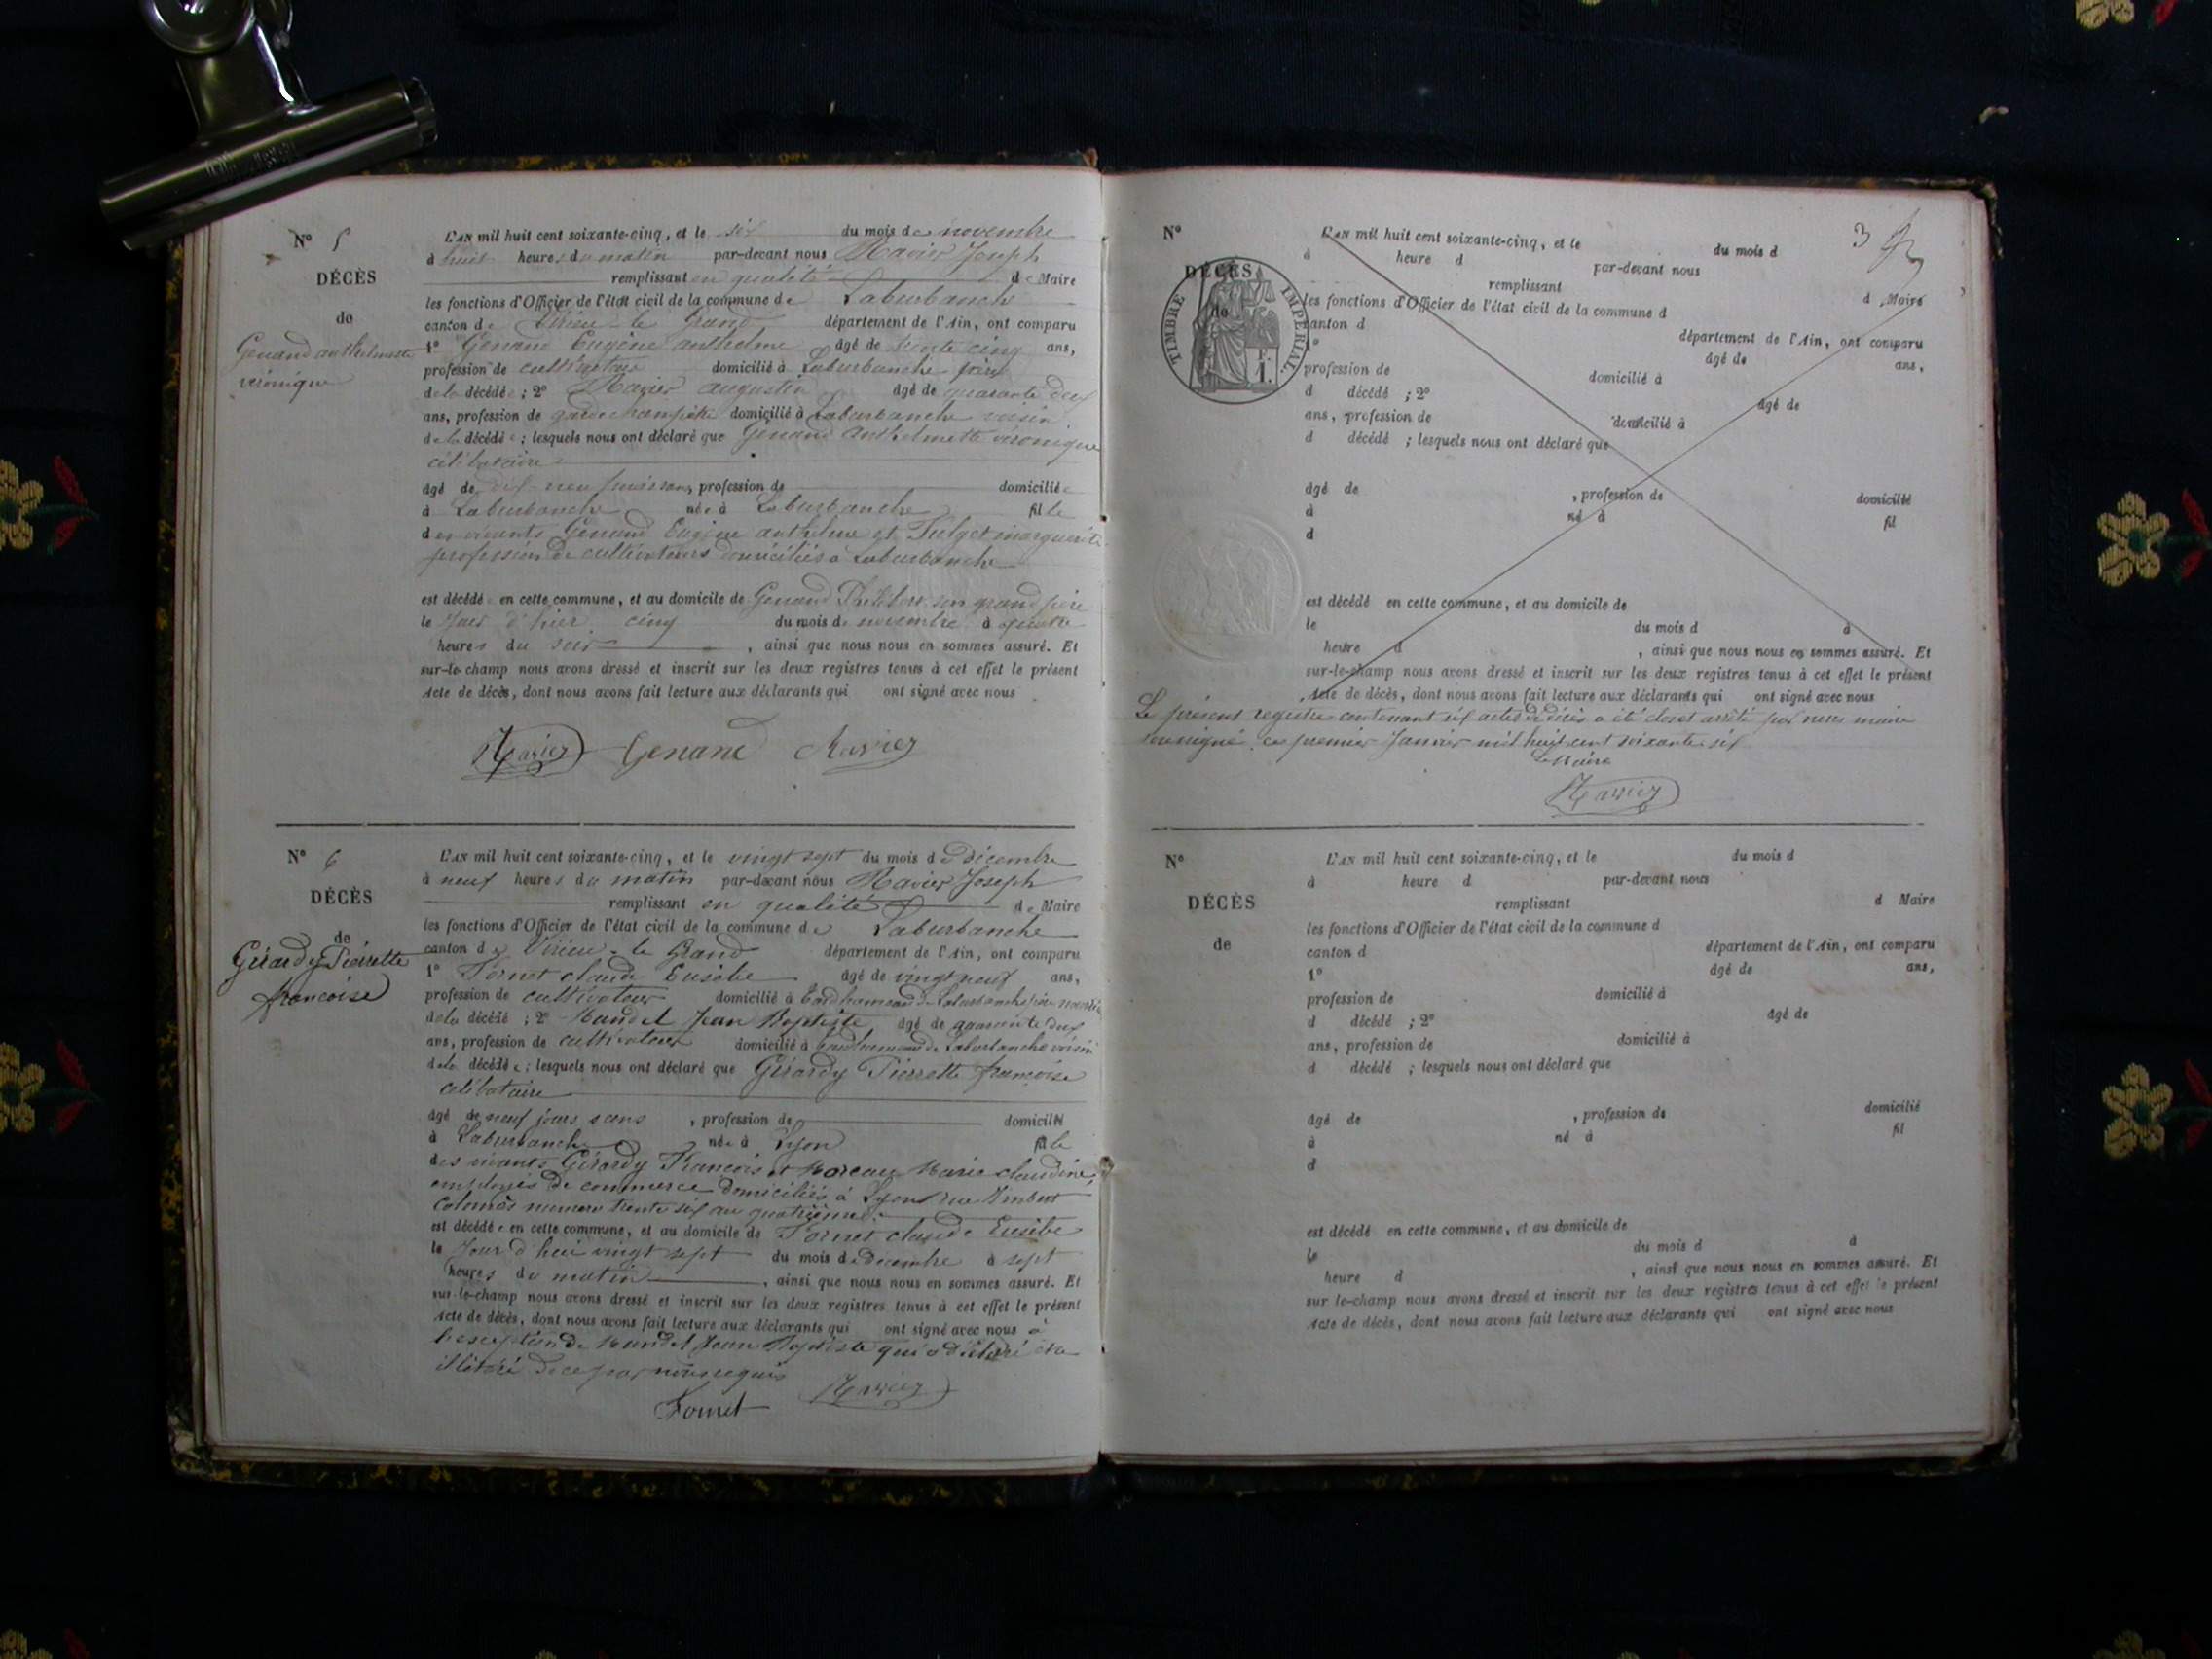 N° 5
DÉCÈS
de
Genand anthelmette
véronique
L'AN mil huit cent soixante-cinq, et le six du mois de novembre
à huit heures du matin par-devant nous Ravier Joseph
remplissant en qualité de Maire
les fonctions d'Officier de l'état civil de la commune de Laburbanche
canton de Virieu-le Grand département de l'Ain, ont comparu
1° Genand Eugène anthelme âgé de trente cinq ans,
profession de cultivateur domicilié à Laburbanche père
de la décédée ; 2° Ravier augustin âgé de quarante deux
ans, profession de garde champêtre domicilié à Laburbanche voisin
de la décédée ; lesquels nous ont déclaré que Genand Anthelmette véronique
célibataire
âgé de dix-neuf mois sans, profession de domicilié
à Laburbanche née à Laburbanche fille
des vivants Genand Eugène anthelme et marguerite
profession de cultivateurs domiciliés à Laburbanche
est décédée en cette commune, et au domicile de Genand Philibert son grand père
le jour d'hier cinq du mois de novembre à quatre
heures du soir , ainsi que nous nous en sommes assuré. Et
sur-le-champ nous avons dressé et inscrit sur les deux registres tenus à cet effet le présent
Acte de décès, dont nous avons fait lecture aux déclarants qui ont signé avec nous
Ravier Genand Ravier
N° 6
DÉCÈS
de
Girardy Pierrette
francoise
L'AN mil huit cent soixante-cinq, et le vingt sept du mois de décembre
à neuf heures du matin par-devant nous Ravier Joseph
remplissant en qualité de Maire
les fonctions d'Officier de l'état civil de la commune de Laburbanche
canton de Virieu-le Grand département de l'Ain, ont comparu
1° Fornet claude Eusèbe âgé de vingt neuf ans,
profession de cultivateur domicilié à de Laburbanche père nourricier
de la décédé ; 2° Jean Baptiste, âgé de quarante deux
ans, profession de cultivateur domicilié à de Laburbanche voisin
de la décédée ; lesquels nous ont déclaré que Girardy Pierrette françoise
célibataire
âgé de neuf jours sans , profession de domicilié
à Laburbanche née à Lyon fille
des vivants Girardy François et Moreau Marie claudine,
employés de commerce domiciliés à Lyon rue Imbert
Colomès numero trente six au quatrième
est décédée en cette commune, et au domicile de Fornet claude Eusèbe
le Jour d'hui vingt sept du mois de décembre à sept
heures du matin , ainsi que nous nous en sommes assuré. Et
sur-le-champ nous avons dressé et inscrit sur les deux registres tenus à cet effet le présent
Acte de décès, dont nous avons fait lecture aux déclarants qui ont signé avec nous à
l'exception de Jean Baptiste qui a déclaré être
illétéré de ce par nous requis
Ravier
Fornet
N°
DÉCÈS
de
TIMBRE IMPÉRIAL.
3
L'AN mil huit cent soixante-cinq, et le du mois d
à heure d par-devant nous
remplissant d Maire
les fonctions d'Officier de l'état civil de la commune d
canton d département de l'Ain, ont comparu
1° âgé de ans,
profession de domicilié à
d décédé ; 2° âgé de
ans, profession de domicilié à
d décédé ; lesquels nous ont déclaré que
âgé de , profession de domicilié
à né à fil
d
est décédé en cette commune, et au domicile de
le du mois d à
heure d , ainsi que nous nous en sommes assuré. Et
sur-le-champ nous avons dressé et inscrit sur les deux registres tenus à cet effet le présent
Acte de décès, dont nous avons fait lecture aux déclarants qui ont signé avec nous
Le présent registre contenant six actes de décès a été clos et arrêté par nous maire
soussigné, ce premier Janvier mil huit cent soixante six
Le Maire
Ravier
N°
DÉCÈS
de
L'AN mil huit cent soixante-cinq, et le du mois d
à heure d par-devant nous
remplissant d Maire
les fonctions d'Officier de l'état civil de la commune d
canton d département de l'Ain, ont comparu
1° âgé de ans,
profession de domicilié à
d décédé ; 2° âgé de
ans, profession de domicilié à
d décédé ; lesquels nous ont déclaré que
âgé de , profession de domicilié
à né à fil
d
est décédé en cette commune, et au domicile de
le du mois d à
heure d , ainsi que nous nous en sommes assuré. Et
sur le-champ nous avons dressé et inscrit sur les deux registres tenus à cet effet le présent
Acte de décès, dont nous avons fait lecture aux déclarants qui ont signé avec nous